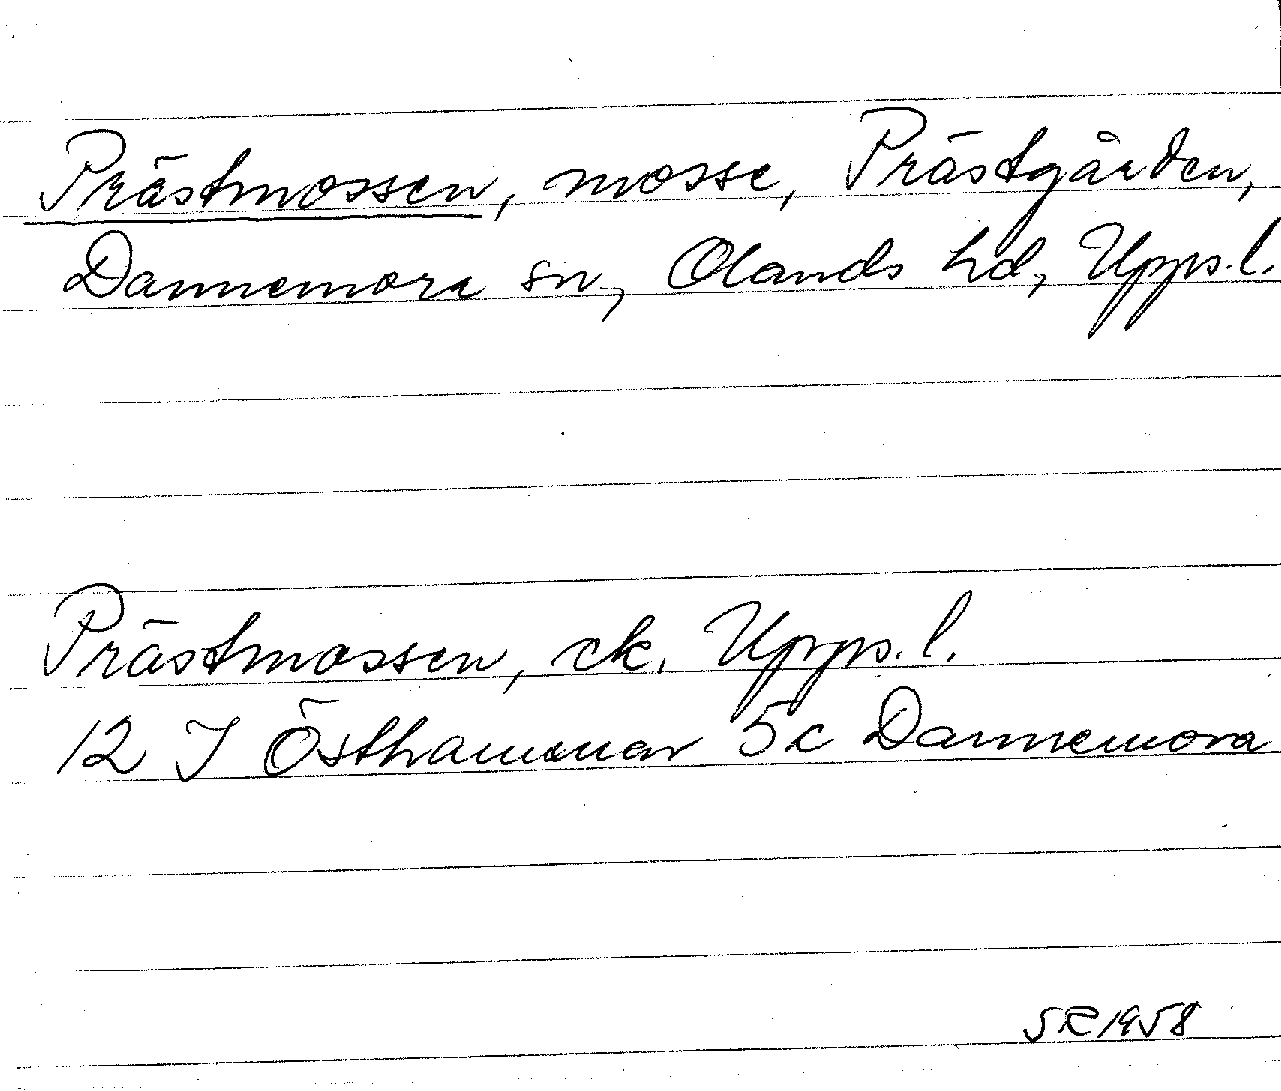 Prästmossen, mosse, Prästgården,
Dannemora sn, Olands hd, Upps. l.
Prästmossen, ek. Upps. l.
12 I Östhammar 5c Dannemora
SR 1958